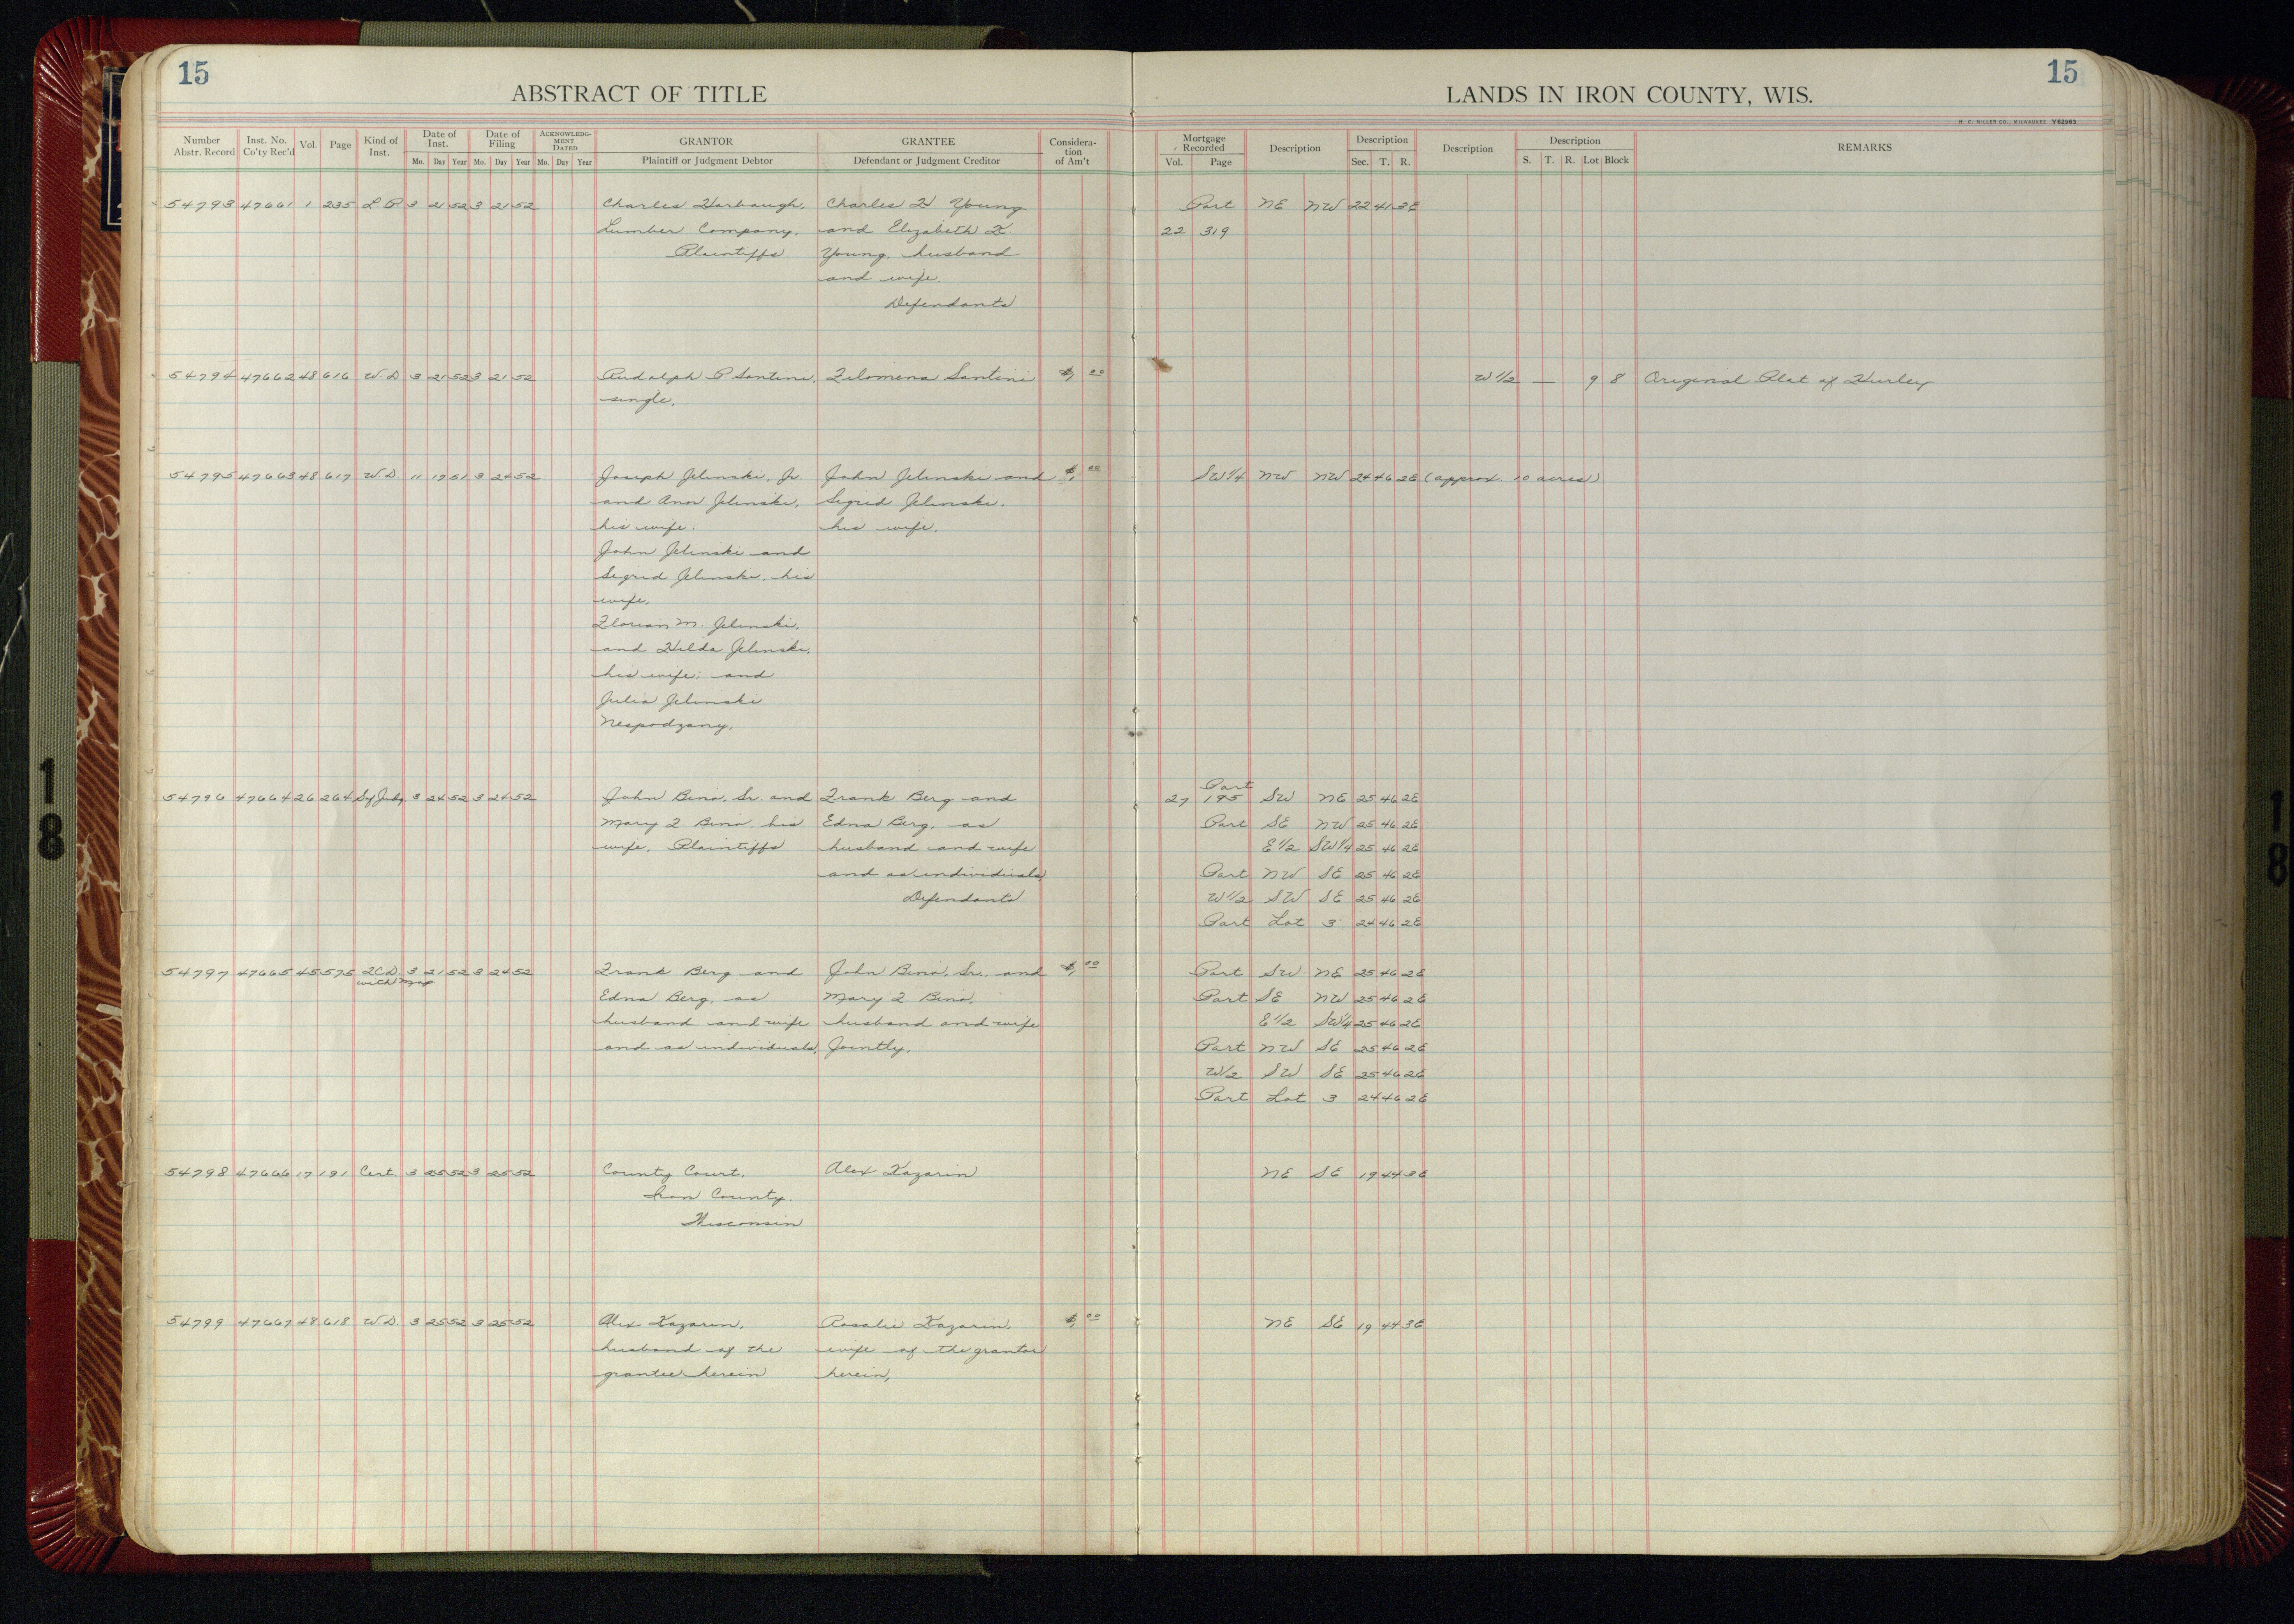 15
ABSTRACT OF TITLE
LANDS IN IRON COUNTY, WIS.
15
H. C. MILLER CO., MILWAUKEE V62963
Number Abstr. Record Inst. No. Co'ty Rec'd Vol. Page Kind of Inst. Date of Inst. Mo. Day Year Date of Filing Mo. Day Year ACKNOWLEDGMENT DATED Mo. Day Year GRANTOR Plaintiff or Judgment Debtor GRANTEE Defendant or Judgment Creditor Consideration of Am't Mortgage Recorded Vol. Page Description Description Sec. T. R. Description Description S. T. R. Lot Block REMARKS
54793 47661 1 235 L P 3 21 52 3 21 52 Charles Harbaugh, Charles H. Young Part NE NW 22 41 3E
Lumber Company, and Elizabeth K. 22 319
Plaintiffs Young, husband
and wife.
Defendants
54794 47662 48 616 W.D 3 21 52 3 21 52 Rudolph P Santini, Filomena Santini $1, 00 W 1/2 — 9 8 Original Plat of Hurley
single,
54795 47663 48 617 W.D 11 17 51 3 24 52 Joseph Jelinski, Jr. John Jelinski and $1, 00 SW 1/4 NW NW 24 46 2E (approx. 10 acres)
and Ann Jelinski, Sigrid Jelinski.
his wife; his wife.
John Jelinski and
Sigrid Jelinski, his
wife,
Florian M. Jelinski,
and Hilda Jelinski,
his wife; and
Julia Jelinski
Nespodzany.
Part
54796 47664 26 264 3 24 52 3 24 52 John Bino, Sr. and Frank Berg and 27 195 SW NE 25 46 2E
Mary F. Bino, his Edna Berg, as Part SE NW 25 46 2E
wife, Plaintiffs husband and wife E 1/2 SW 1/4 25 46 2E
and as individuals, Part NW SE 25 46 2E
Defendants W 1/2 SW SE 25 46 2E
Part Lot 3 24 46 2E
54797 47665 45 575 2CD. 3 21 52 3 24 52 Frank Berg and John Bino, Sr., and $1, 00 Part SW NE 25 46 2E
with Map Edna Berg, as Mary F Bino, Part SE NW 25 46 2E
husband and wife husband and wife E 1/2 SW 1/4 25 46 2E
and as individuals, Jointly, Part NW SE 25 46 2E
W 1/2 SW SE 25 46 2E
Part Lot 3 24 46 2E
54798 47666 17 191 Cert. 3 25 52 3 25 52 County Court, Alex Kazarin NE SE 19 44 3E
Iron County.
Wisconsin
54799 47667 48 618 W.D. 3 25 52 3 25 52 Alex Kazarin, Rosalie Kazarin, $1, 00 NE SE 19 44 3E
husband of the wife of the grantor
grantee herein herein,
18
18